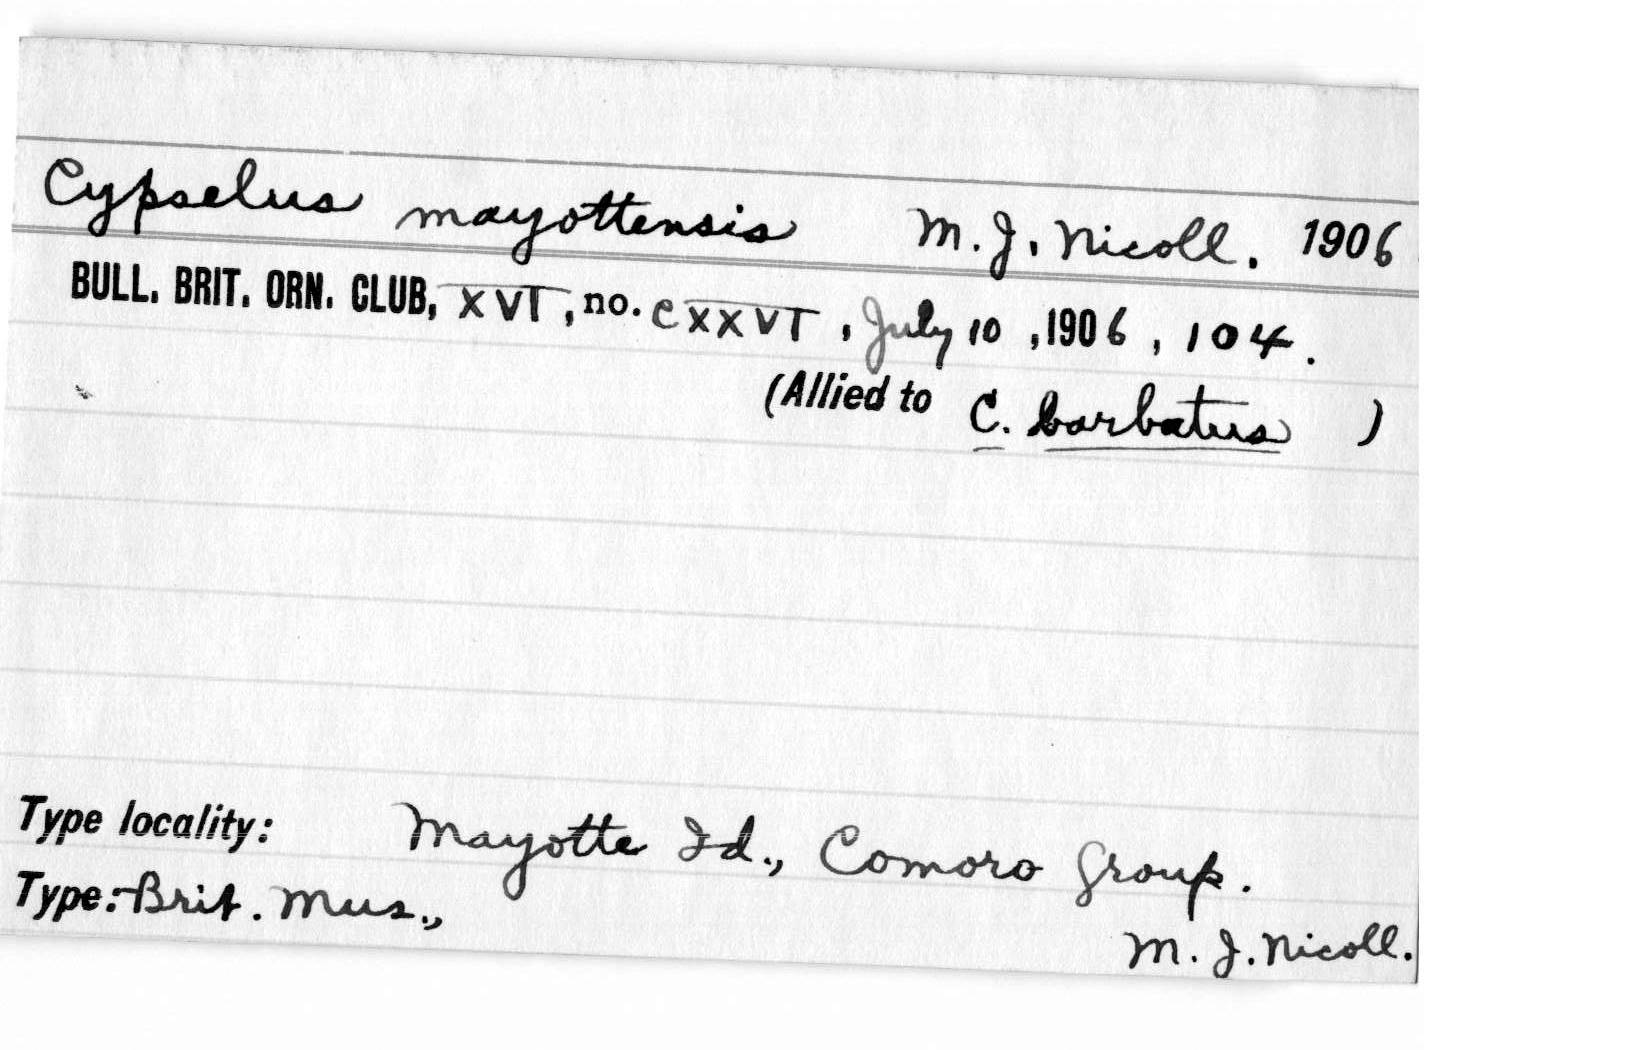 Cypselus mayottensis M. J. Nicoll. 1906
BULL. BRIT. ORN. CLUB, XVI, no. CXXVI, July 10, 1906, 104.
(Allied to C. barbatus )
Type locality: Mayotte Id., Comoro Group.
Type:-Brit. Mus.,
M. J. Nicoll.